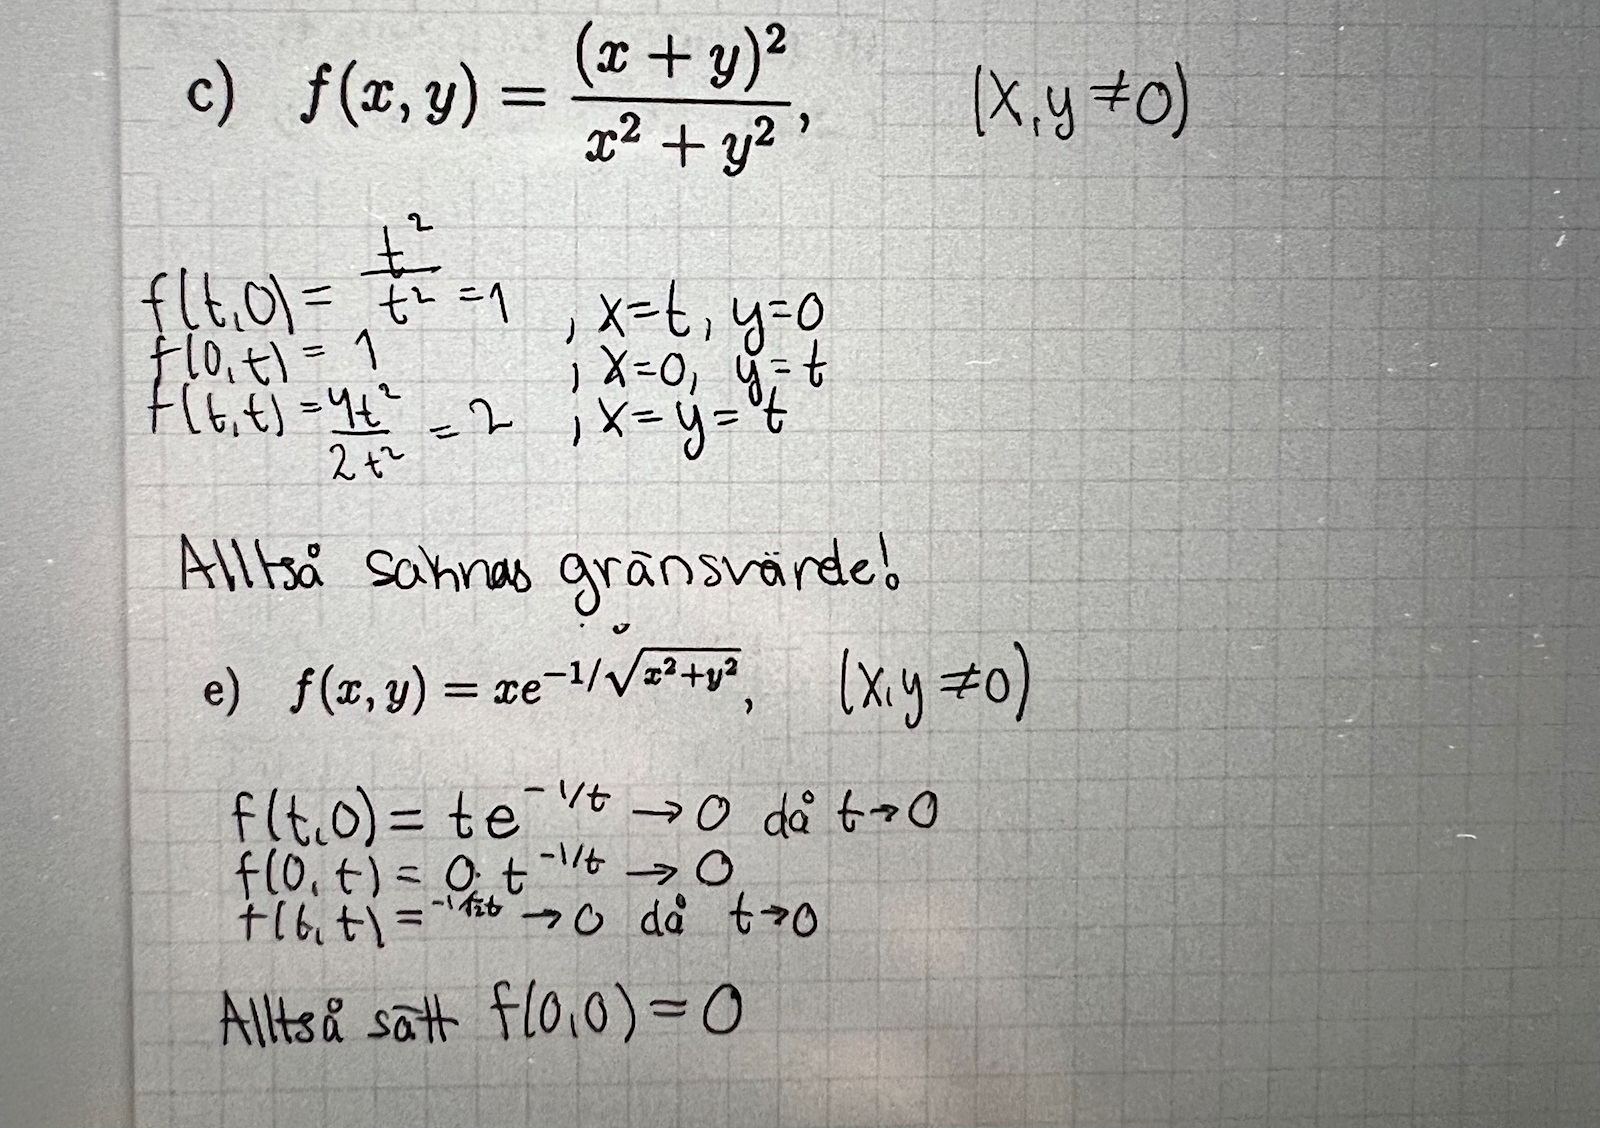 c) f(x, y) = (x + y)² / (x² + y²), (x,y ≠ 0)
f(t,0) = t²/t² = 1 , x=t, y=0
f(0,t) = 1 , x=0, y=t
f(t,t) = 4t²/2t² = 2 , x=y=t
Alltså saknas gränsvärde!
e) f(x, y) = xe^(−1/√(x²+y²)), (x,y ≠ 0)
f(t,0) = te^(-1/t) → 0 då t→0
f(0,t) = 0·t^(-1/t) → 0
f(t,t) = ^(-1/√2t) → 0 då t→0
Alltså sätt f(0,0) = 0